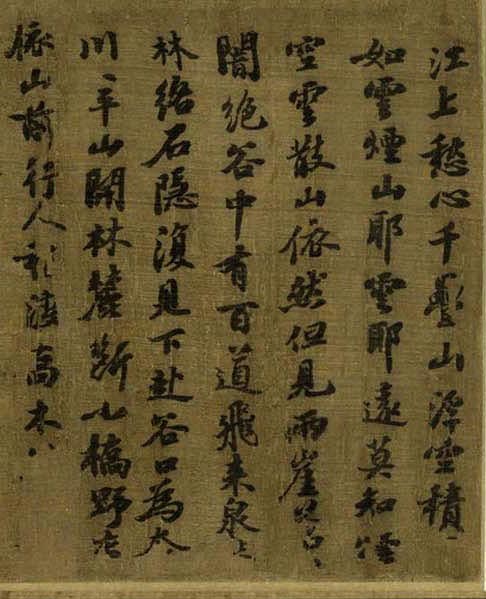 江上愁心千疊山浮空積
如雲煙山耶雲耶遠莫知煙
空雲散山依然但見兩崖蒼〻
闇絶谷中有百道飛来泉
林絡石隱復見下赴谷口為
川〻平山開林麓斷小橋野店
依山前行人稍渡高木